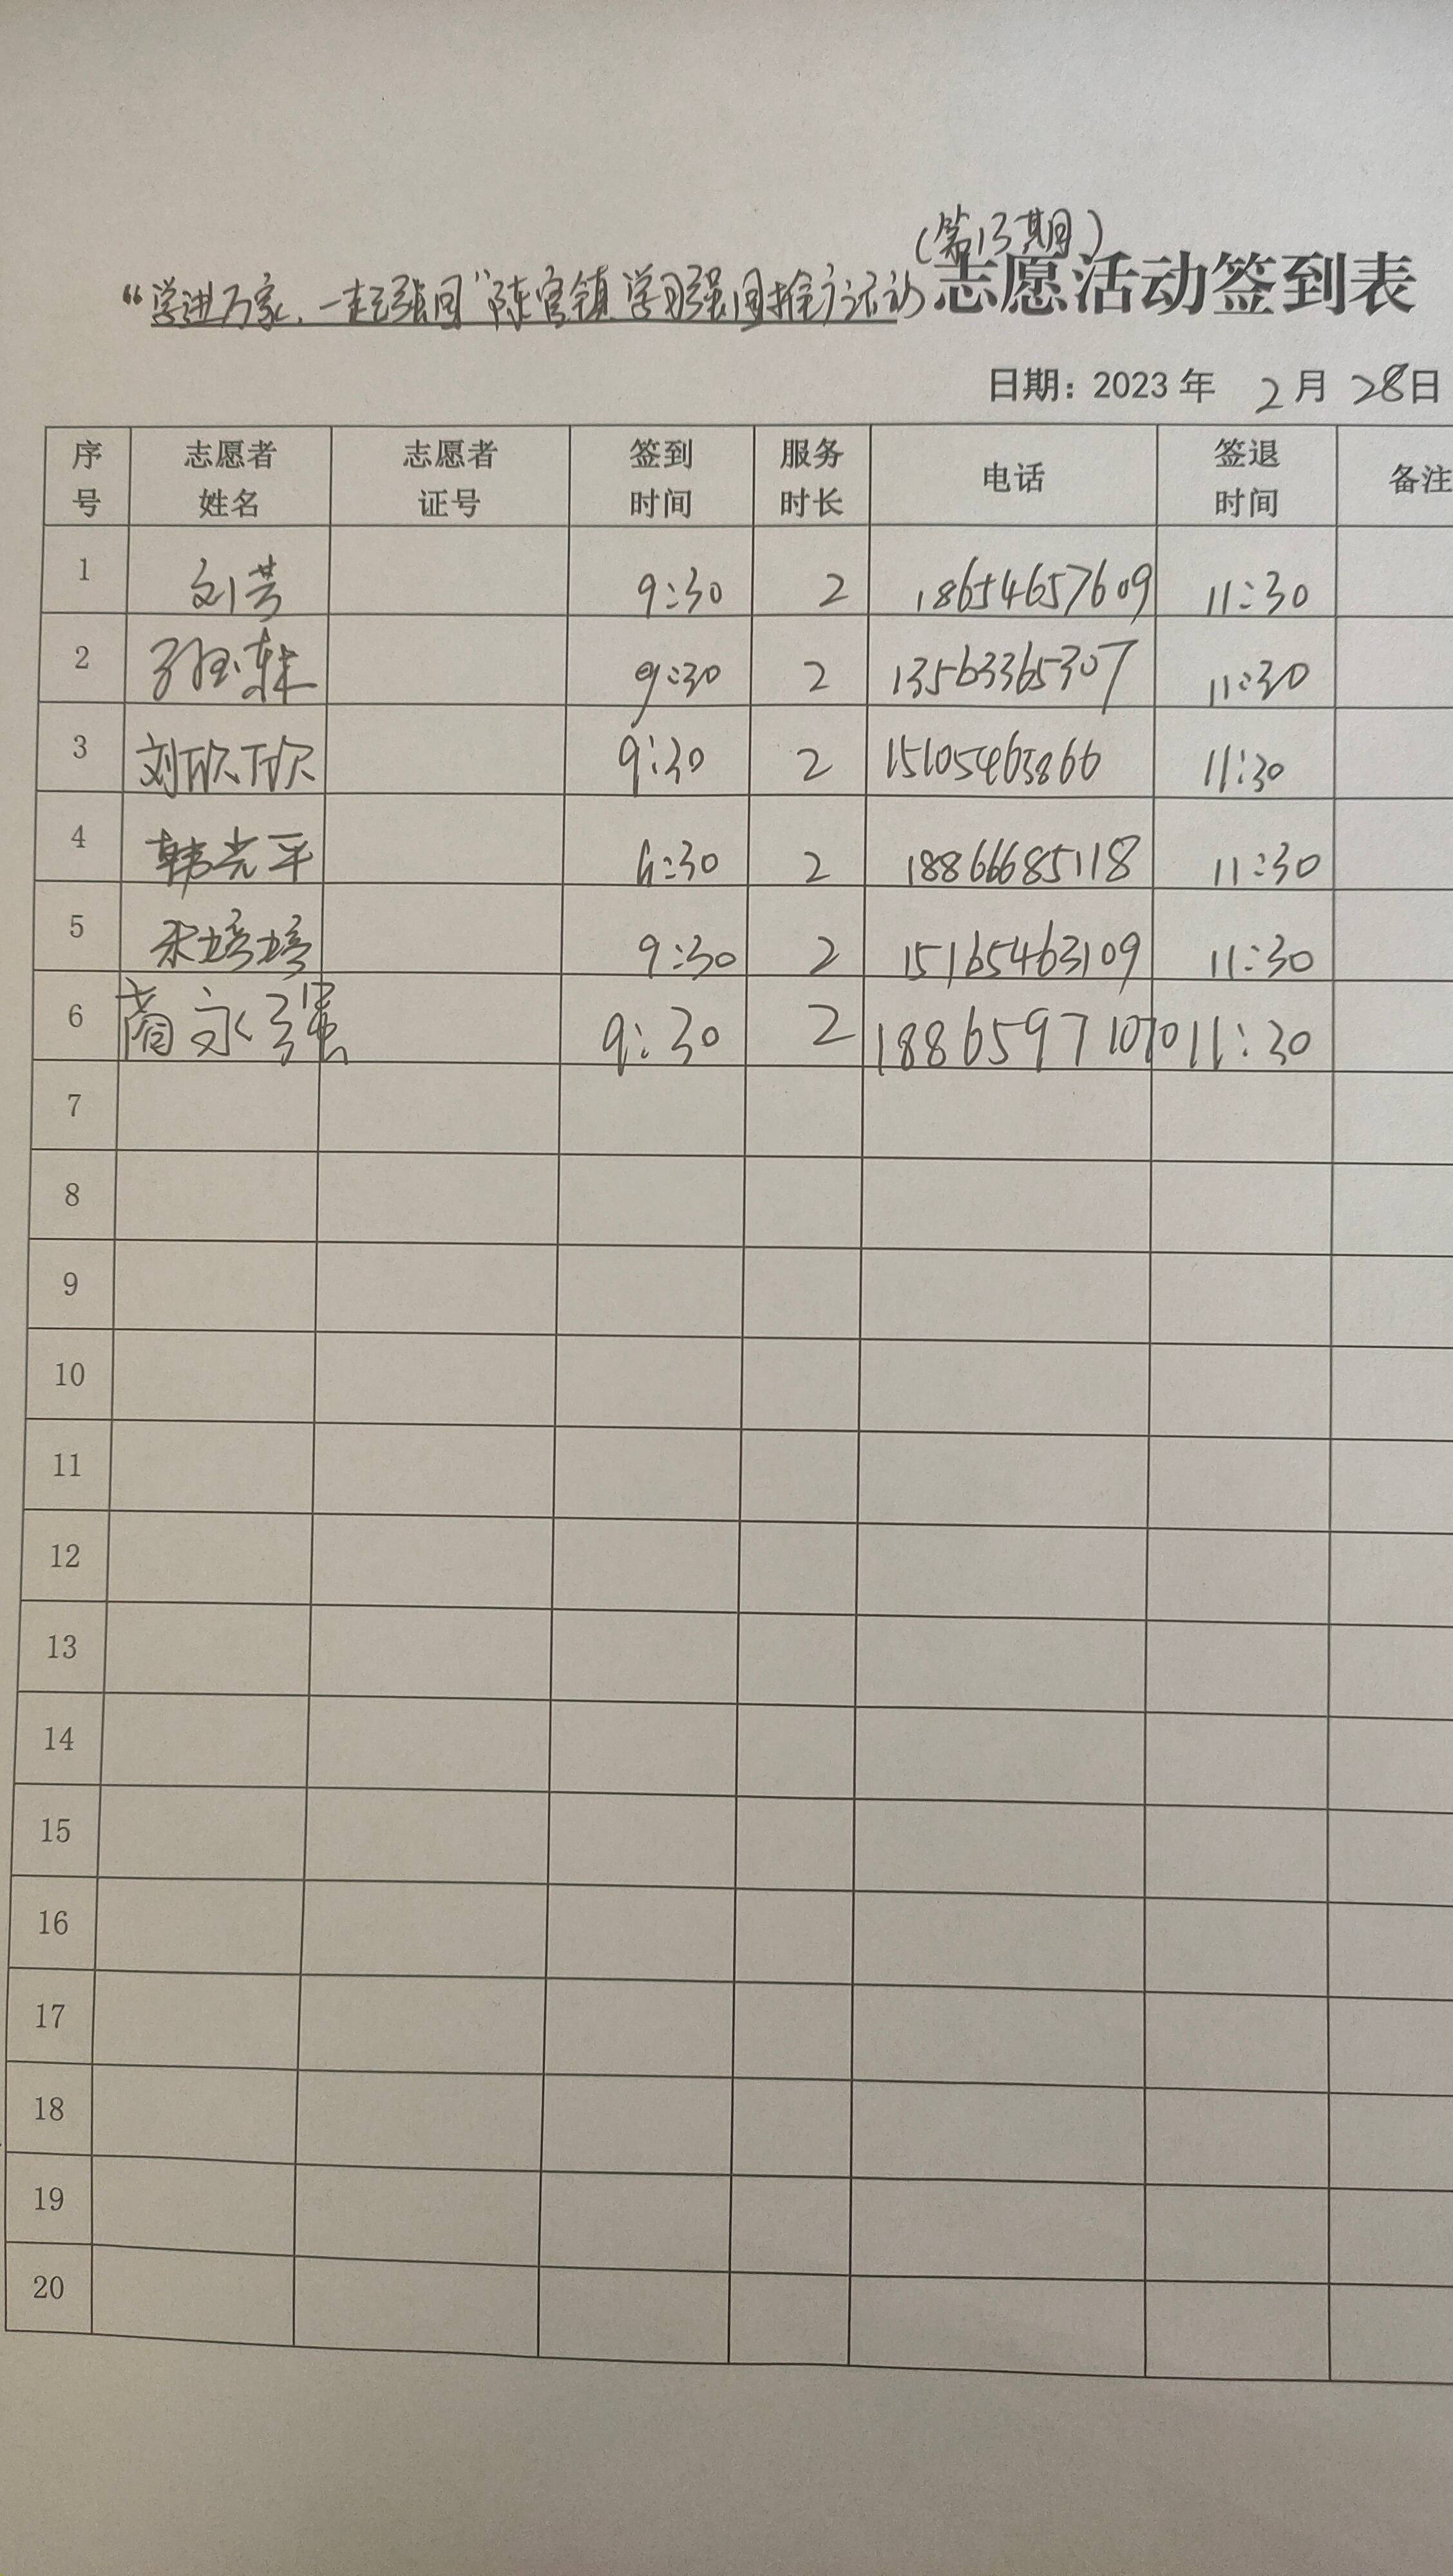 （第13期）
“学进万家、一起强国”陈官镇学习强国推广活动志愿活动签到表
日期：2023年 2月 28日
序号 志愿者姓名 志愿者证号 签到时间 服务时长 电话 签退时间 备注
1 刘芳 9:30 2 18654657609 11:30
2 9:30 2 13563365307 11:30
3 刘欣欣 9:30 2 15105463866 11:30
4 韩光平 :30 2 18866685118 11:30
5 培培 9:30 2 15165463109 11:30
6 商永强 9:30 2 18865971070 11:30
7
8
9
10
11
12
13
14
15
16
17
18
19
20